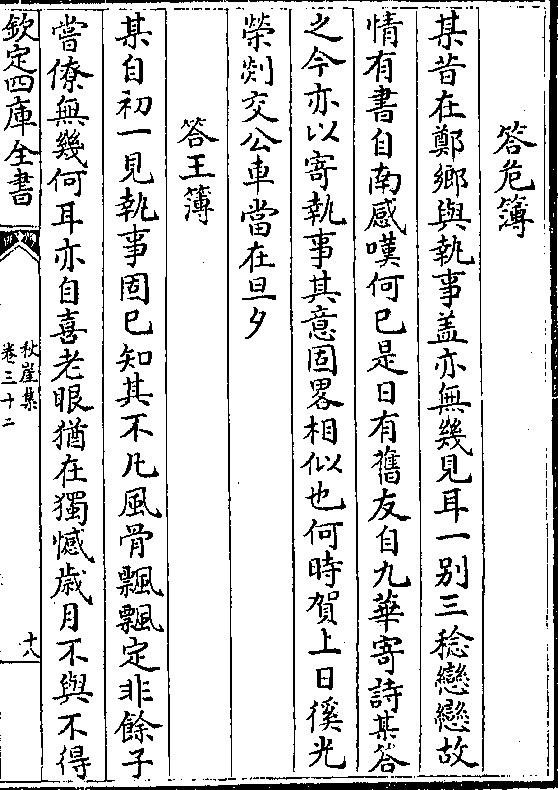 答危簿
某昔在鄭鄉與執事盖亦無幾見耳一别三稔戀戀故
情有書自南感嘆何已是日有舊友自九華寄詩某答
之今亦以寄執事其意固畧相似也何時賀上日徯光
榮剡交公車當在旦夕
答王簿
某自初一見執事固已知其不凡風骨飄飄定非餘子
嘗僚無幾何耳亦自喜老眼猶在獨憾歲月不與不得
欽定四庫全書
秋崖集
卷三十二
十八